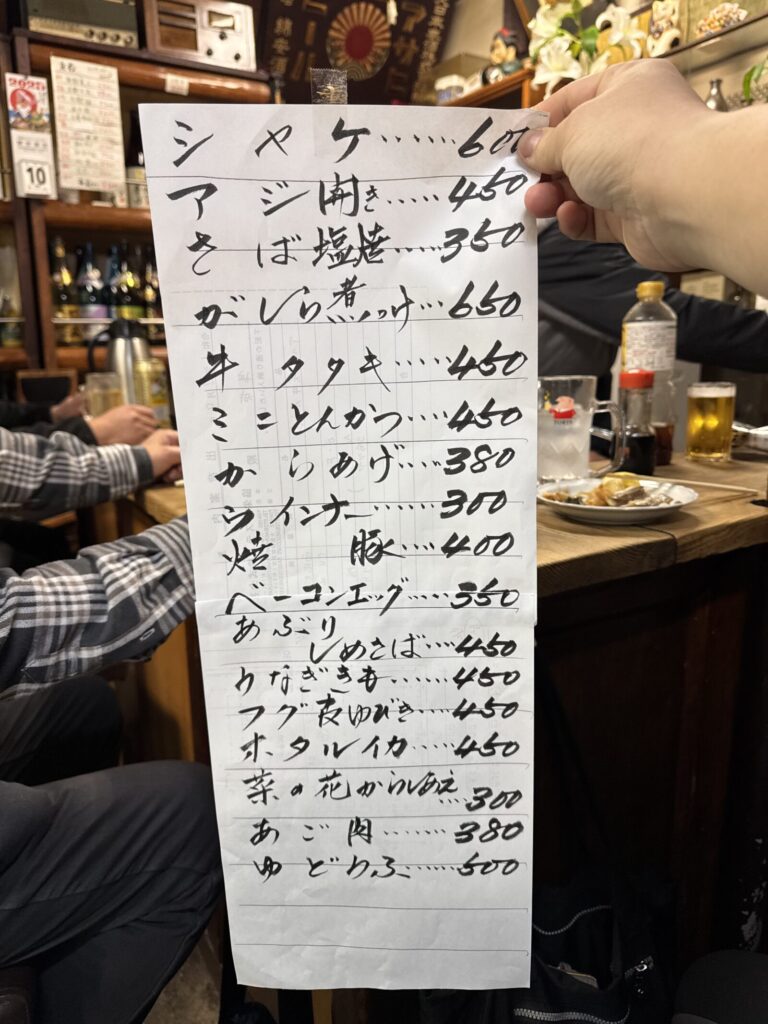 シャケ……600
アジ開き……450
さば塩焼……350
がしら煮つけ…650
牛タタキ……450
ミニとんかつ……450
からあげ……380
ウインナー……300
焼豚……400
ベーコンエッグ……350
あぶり
しめさば……450
うなぎきも……450
フグ皮ゆびき……450
ホタルイカ……450
菜の花からしあえ
…300
あご肉……380
ゆどうふ……500
10